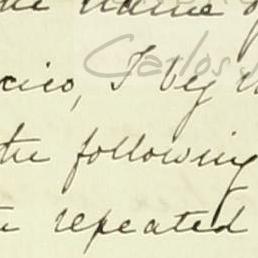 the name of
Carlos
xico, I beg
the following
repeated